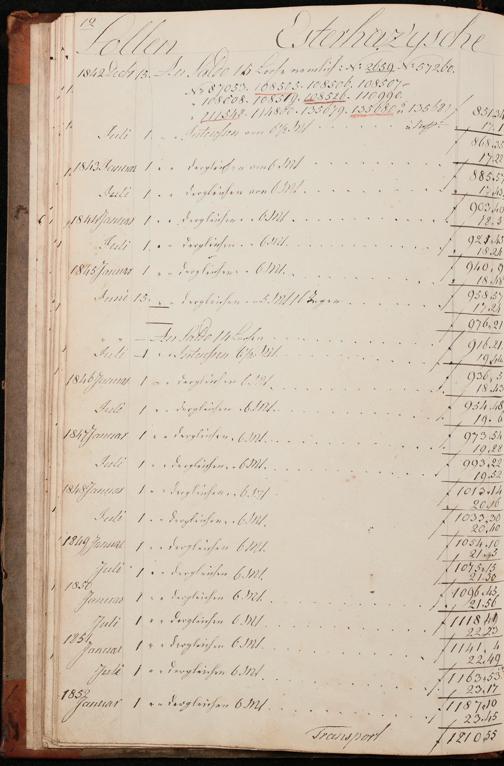 12
Sollen Esterhazysche
1842 Decbr 15. An Saldo 15 Loose nemlich: No 2659. No 57260.
No 87053. 108505. 108506. 108507.
108008. 108519. 108526. 110990.
111542. 114850. 135679. 135680 u 135681 851.34
Juli 1 " " Intressen von 6 Mt. 17.
868.35
1843 Januar 1 " " dergleichen von 6 Mt. 17.22
885.57
Juli 1 " " dergleichen von 6 Mt. 17.43
903.40
1844 Januar 1 " " dergleichen " 6 Mt. 18.5
921.45
Juli 1 " " dergleichen " 6 Mt. 18.24
940.9
1845 Januar 1 " " dergleichen " 6 Mt. 18.48
958.57
Juni 15. " " dergleichen " 5 Mt 16 Tagen 17.24
976.21
" " An Saldo 14 Loosen 916.21
Juli 1 " " Intressen 6 Mt. 19.44
936.5
1846 Januar 1 " " dergleichen 6 Mt. 18.43
954.48
Juli 1 " " dergleichen " 6 Mt. 19.6
973.54
1847 Januar 1 " " dergleichen " 6 Mt. 19.28
993.22
Juli 1 " " dergleichen " 6 Mt. 19.52
1013.14
1848 Januar 1 " " dergleichen " 6 Mt 20.16
1033.30
Juli 1 " " dergleichen " 6 Mt. 20.40
1054.10
1849 Januar 1 " " dergleichen 6 Mt. 21.5
1075.15
Juli 1 " " dergleichen 6 Mt. 21.30
1096.45
1850
Januar 1 " " dergleichen 6 Mt. 21.56
1118.41
Juli 1 " " dergleichen 6 Mt. 22.23
1141.4
1851
Januar 1 " " dergleichen 6 Mt. 22.49
1163.53
Juli 1 " " dergleichen 6 Mt. 23.17
1187.10
1852
Januar 1 " " dergleichen 6 Mt. 23.45
Transport 1210.55